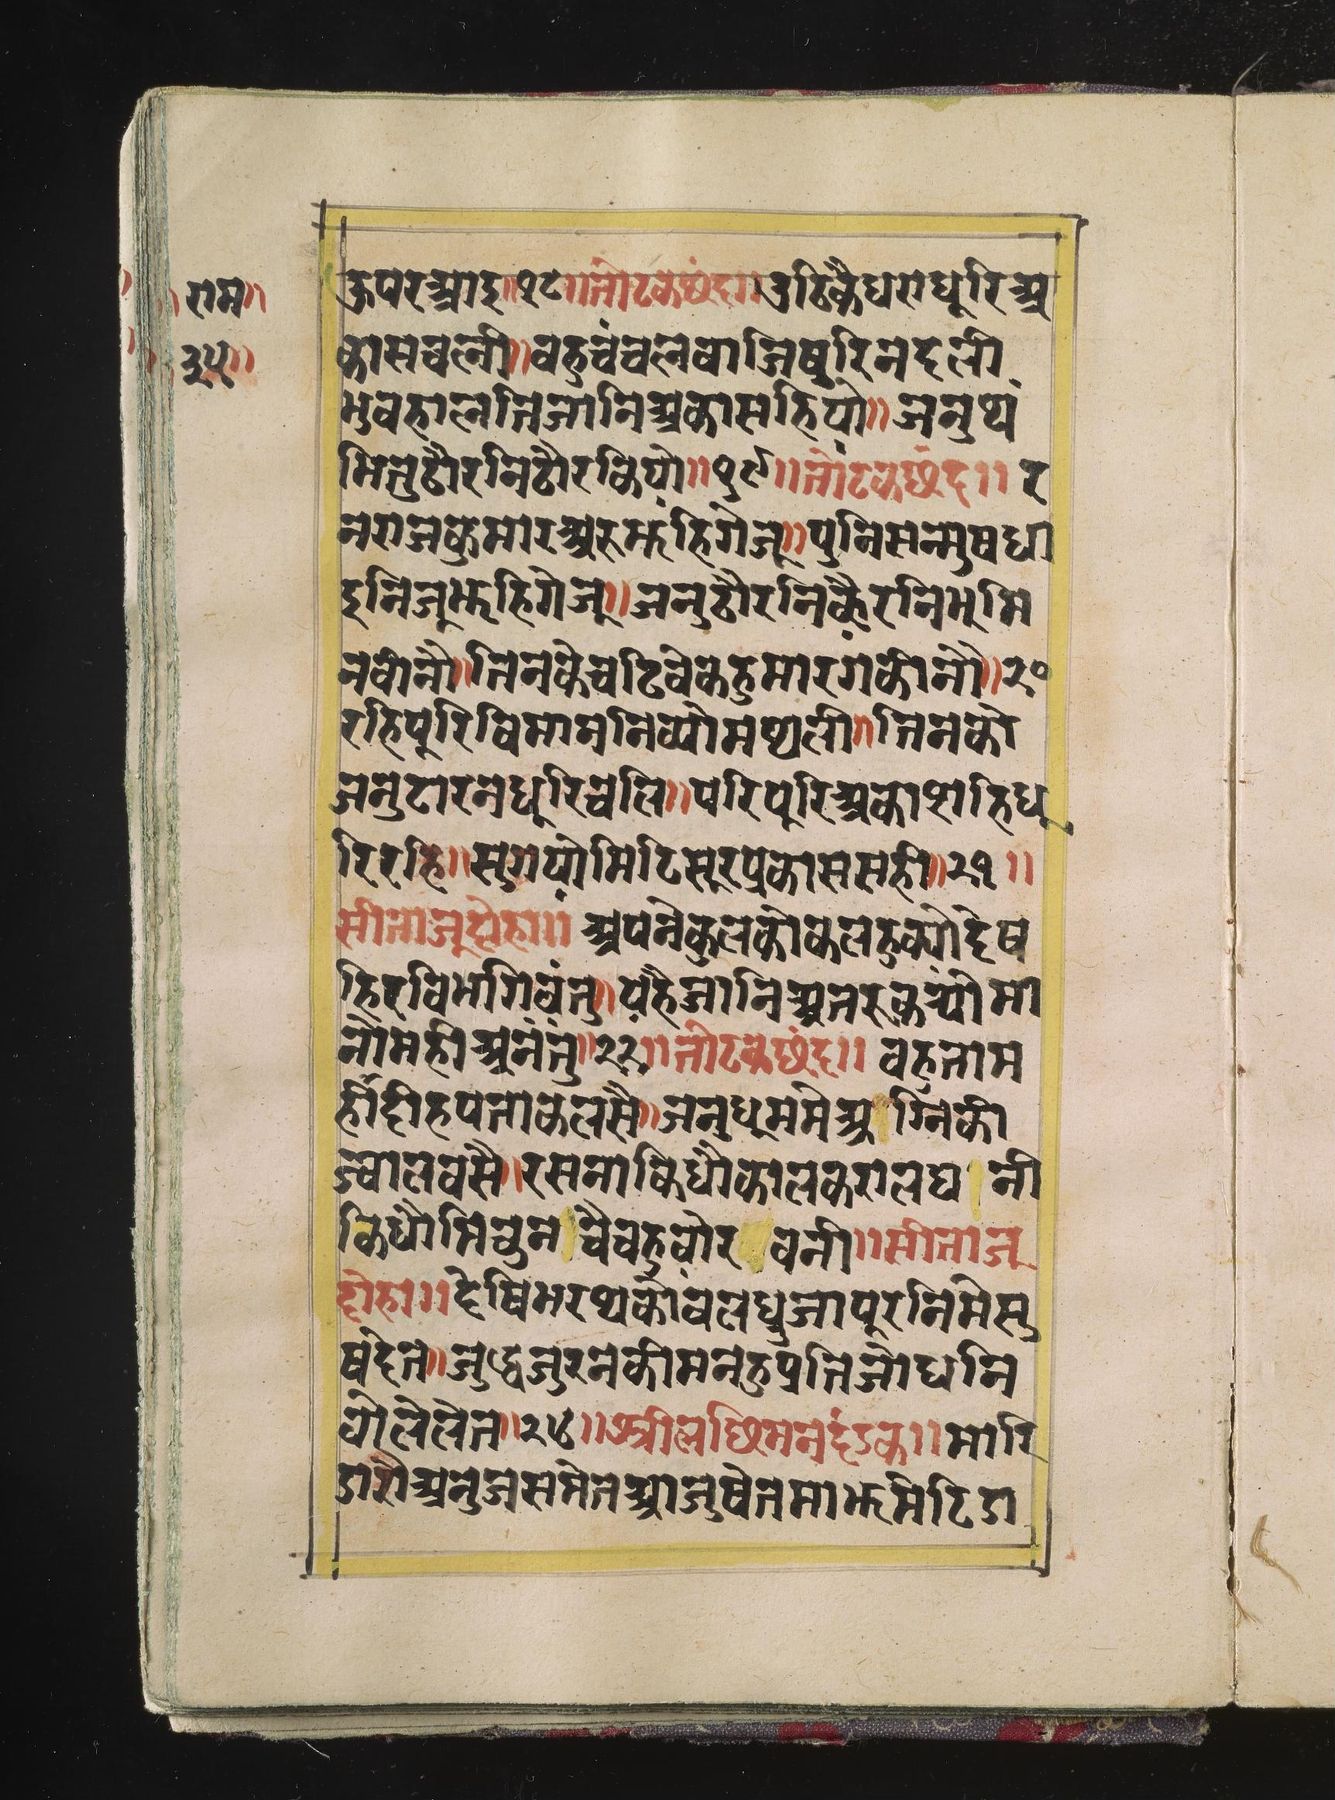 ऊपरआइ॥१८॥तोटकछंद॥उठिकैधराधूरिअ
कासचली॥बहुचंचलबाजिषुरिनदली
भुवहालतिजानिअकासहियौ॥जनुथं
भितुठौरनिठौरकियौ॥१९॥तोटकछंद॥र
नराजकुमारअरुझहिगेजू॥पुनिसन्मुषघा
इनिजूझहिगेजू॥जनुठौरनिठौरनिभूमि
नवीनौ॥तिनकेचढिवेकहुमारगकीनौ॥२०
रहिपूरिविमाननिव्योमथली॥तिनको
जनुटारनधूरिचलि॥परिपूरिअकाशहिधू
रिरहि॥सुगयोमिटिसूरप्रकाससही॥२१॥
सीताजूदोहा॥अपनेकुलकौकलहक्योदेष
हिरविभगिवंतु॥यहैजानिअंतरुकर्योमा
नोमहीअनंतु॥२२॥तोटकछंद॥बहुताम
हींदीहपताकलसै॥जनुधूममेअग्निकी
ज्वालवसै॥रसनाकिधौकालकरालघनी
किधौमिचुनचैबहुवोरवनी॥सीताजू
दोहा॥देषिभरथकीचलधुजापूरनिमेसु
षदेत॥जुद्धजुरनकीमनहुप्रतिजोधनि
वोलेलेत॥२४॥श्रीलछिमनदंडक॥मारि
डारौअनुजसमेतआजुषेतमाझमेटिडा
राम॥
३५॥